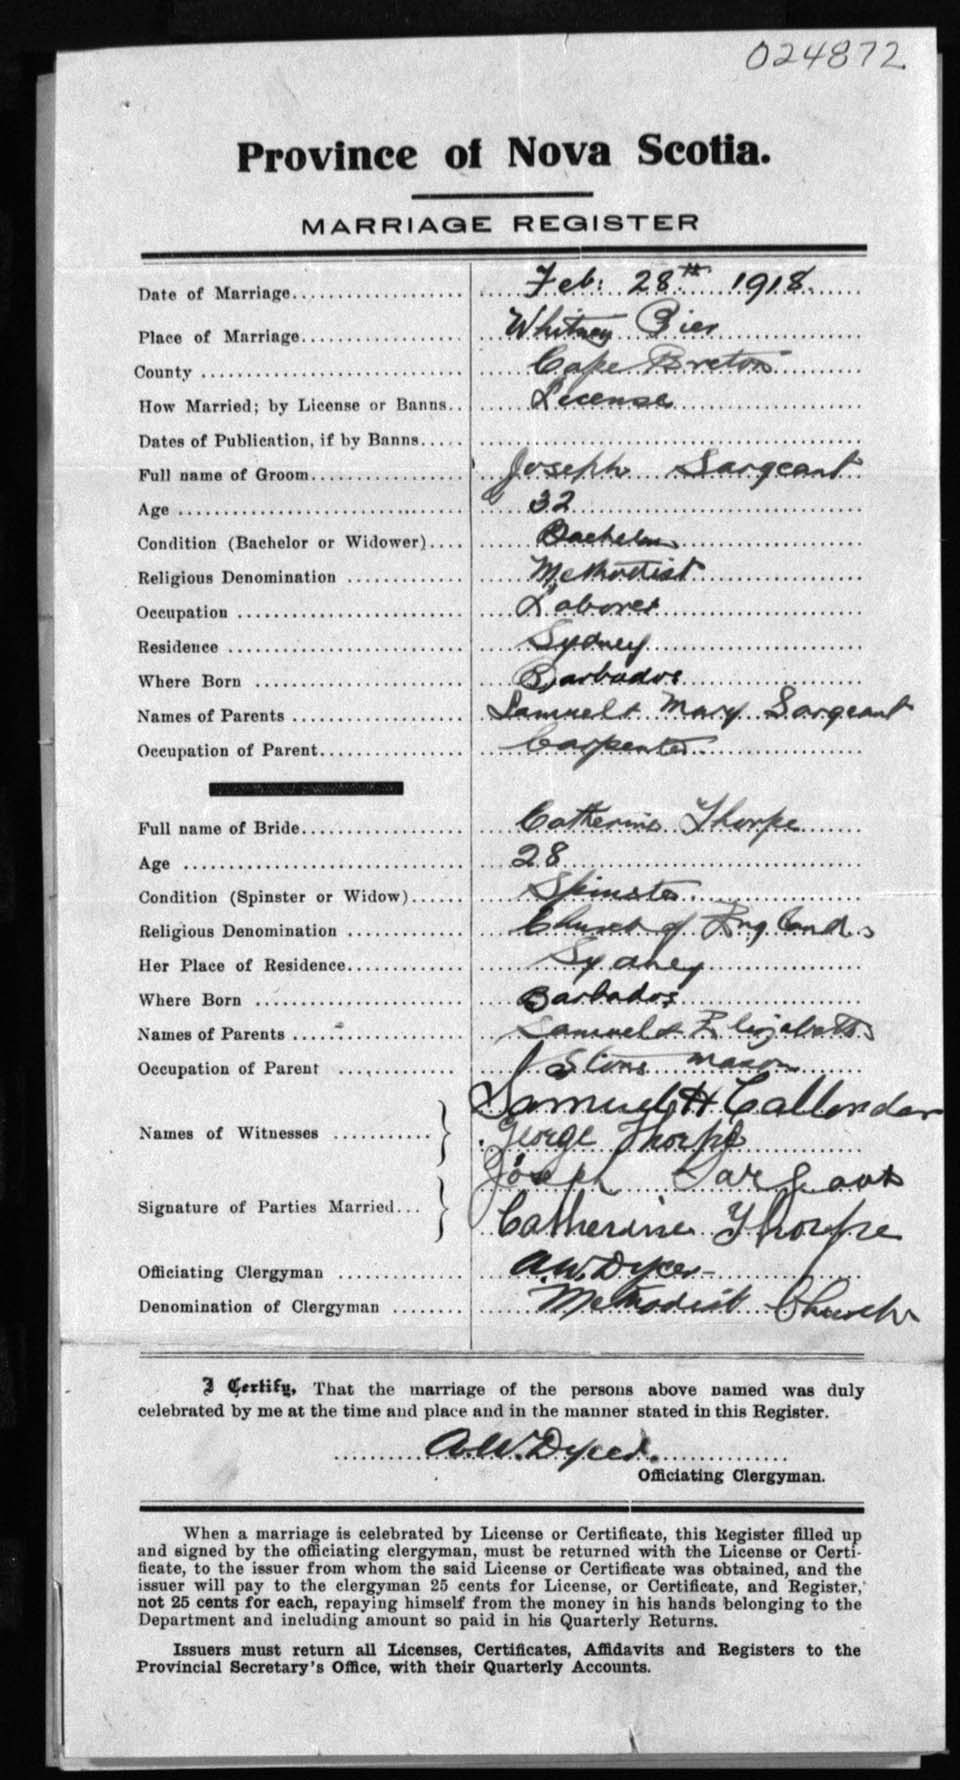 024872
Province of Nova Scotia.
MARRIAGE REGISTER
Date of Marriage.................... Feb: 28th 1918
Place of Marriage................... Whitney Pier
County ......................... Cape Breton
How Married; by License or Banns.. License
Dates of Publication, if by Banns.....
Full name of Groom.................. Joseph Sargeant
Age ........................... 32
Condition (Bachelor or Widower).... Bachelor
Religious Denomination ............. Methodist
Occupation ........................ Laborer
Residence ......................... Sydney
Where Born ....................... Barbados
Names of Parents .................. Samuel & Mary Sargeant
Occupation of Parent................ Carpenter
Full name of Bride.................. Catherine Thorpe
Age ............................ 28
Condition (Spinster or Widow)...... Spinster
Religious Denomination ............. Church of England
Her Place of Residence.............. Sydney
Where Born ....................... Barbados
Names of Parents .................. Samuel & Elizabeth
Occupation of Parent ............. Stone mason
Samuel H Callender
Names of Witnesses ........... George Thorpe
Joseph Sargeant
Signature of Parties Married...
Catherine Thorpe
Officiating Clergyman .............. A.W. Dyer
Denomination of Clergyman ........ Methodist Church
I Certify, That the marriage of the persons above named was duly
celebrated by me at the time and place and in the manner stated in this Register.
A.W. Dyer
Officiating Clergyman.
When a marriage is celebrated by License or Certificate, this Register filled up
and signed by the officiating clergyman, must be returned with the License or Certi-
ficate, to the issuer from whom the said License or Certificate was obtained, and the
issuer will pay to the clergyman 25 cents for License, or Certificate, and Register,
not 25 cents for each, repaying himself from the money in his hands belonging to the
Department and including amount so paid in his Quarterly Returns.
Issuers must return all Licenses, Certificates, Affidavits and Registers to the
Provincial Secretary's Office, with their Quarterly Accounts.